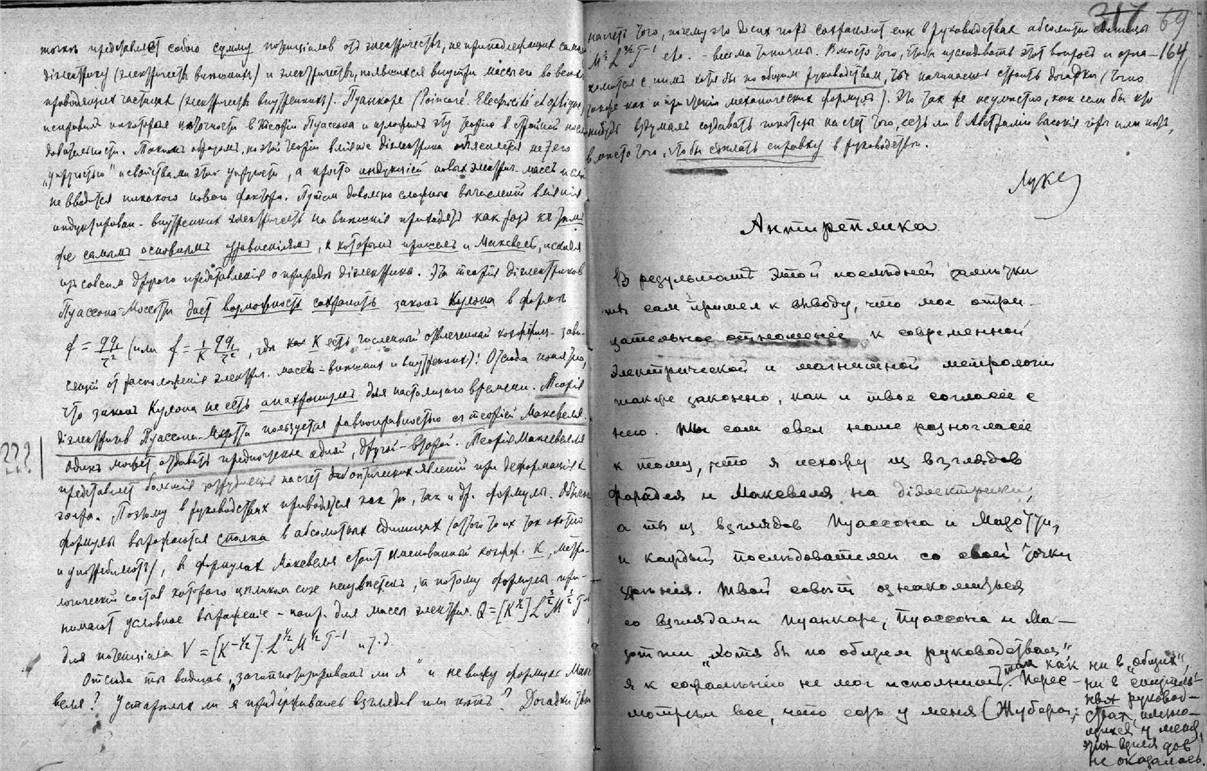 точкѣ представляетъ собою сумму потенціаловъ отъ электричествъ, не принадлежащихъ самому
діэлектрику (электричествъ внѣшнихъ) и электричествъ, появившихся внутри массы его во всѣхъ
проводящихъ частицахъ (электричествъ внутреннихъ). Пуанкаре (Poincaré. Electricité et optique)
исправилъ некоторыя неточности в теоріи Пуассона и изложилъ эту теорію в строгой после-
довательности. Такимъ образомъ, по этой теоріи вліяніе діэлектрика объясняется не его
„упругостью" и свойствами этой упругости, а просто индукціей новыхъ электрич. массъ и
не вводится никакого новаго фактора. Путемъ довольно сложныхъ вычисленій вліянія
индуктирован. внутреннихъ электричествъ на внѣшнія приходятъ какъ разъ къ темъ
же самымъ основнымъ уравненіямъ, к которымъ пришелъ и Максвелъ, исходя
изъ совсем другого представленія о природѣ діэлектрика. Эта теорія діэлектриковъ
Пуассона-Моссотти даетъ возможность сохранить законъ Кулона в формѣ
f = qq₁/r² (или f = 1/K qq₁/r², где K есть численный отвлеченный коэффиц. зави-
сящій от расположенія электрич. массъ - внѣшнихъ и внутреннихъ). Отсюда понятно,
что законъ Кулона не есть анахронизмъ для настоящаго времени. Теорія
діэлектриковъ Пуассона-Моссотти пользуется равноправностью съ теоріей Максвеля.
??? Одинъ можетъ отдавать предпочтенье одной, другой - второй. Теорія Максвелля
представляет большія затрудненія насчет оптическихъ явленій при деформаціяхъ
эѳира. Поэтому в руководствахъ приводятся как те, так и др. формулы. Одни
формулы выражаются сполна в абсолютныхъ единицахъ
и употребляютъ, в формулах Максвеля стоит именованный коэфф. K, метро-
логическій составъ котораго целикомъ еще неизвѣстенъ, а потому формулы при-
нимаютъ условное выраженіе - напр. для массы электрич. Q = [K^½] L^3/2 M^½ T^-1,
для потенціала V = [K^-½] L^½ M^½ T^-1 и т. д.
Отсюда ты видишь, „загипнотизированъ ли я" и не вижу формулъ Макс-
веля? Устарѣлых ли я придерживаюсь взглядовъ или нѣтъ? Догадки твои
317 69
164
насчет того, почему до сих поръ сохраняются еще в руководствах абсолютн. единицы
M^½ L^3/2 T^-1 etc. - весьма типичны. Вместо того, чтобы изследовать этот вопрос и озна-
комиться с нимъ хотя бы по общим руководствамъ, ты начинаешь строить догадки (точно
также как и при чтеніи механических формулъ). Это так же неуместно, как если бы кто
нибудь вздумалъ создавать гипотезы на счет того, есть ли в Австраліи высокія горы или нѣтъ,
вместо того, чтобы сделать справку в руководствѣ.
Лука
Антиреплика
В результатѣ этой последней замѣтки
ты сам пришел к выводу, что мое отри-
цательное отношеніе к современной
электрической и магнитной метрологіи
также законно, как и твое согласіе с
нею. Ты сам свел наше разногласіе
к тому, что я исхожу из взглядов
Фарадея и Максвеля на діэлектрики,
а ты из взглядов Пуассона и Мазотти,
и каждый последователен со своей точки
зрѣнія. Твой совѣт ознакомиться
со взглядами Пуанкаре, Пуассона и Ма-
зотти „хотя бы по общим руководствам"
я к сожалѣнію не мог исполнить, так как ни в „общих",
ни в спеціаль-
ных руковод-
ствах, имею-
щихся у меня,
этих взглядов
не оказалось.
Перес-
мотрѣл все, что есть у меня (Жубера,